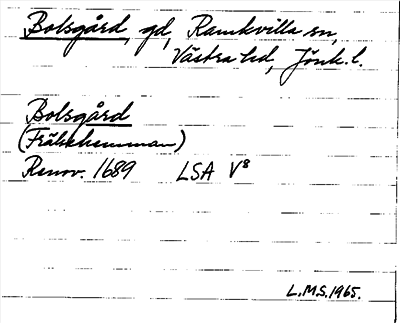 Bolsgård, gd, Ramkvilla sn,
Västra hd, Jönk. l.
Bolsgård
(Frälsehemman)
Renov. 1689 LSA V⁸
L.M.S. 1965.